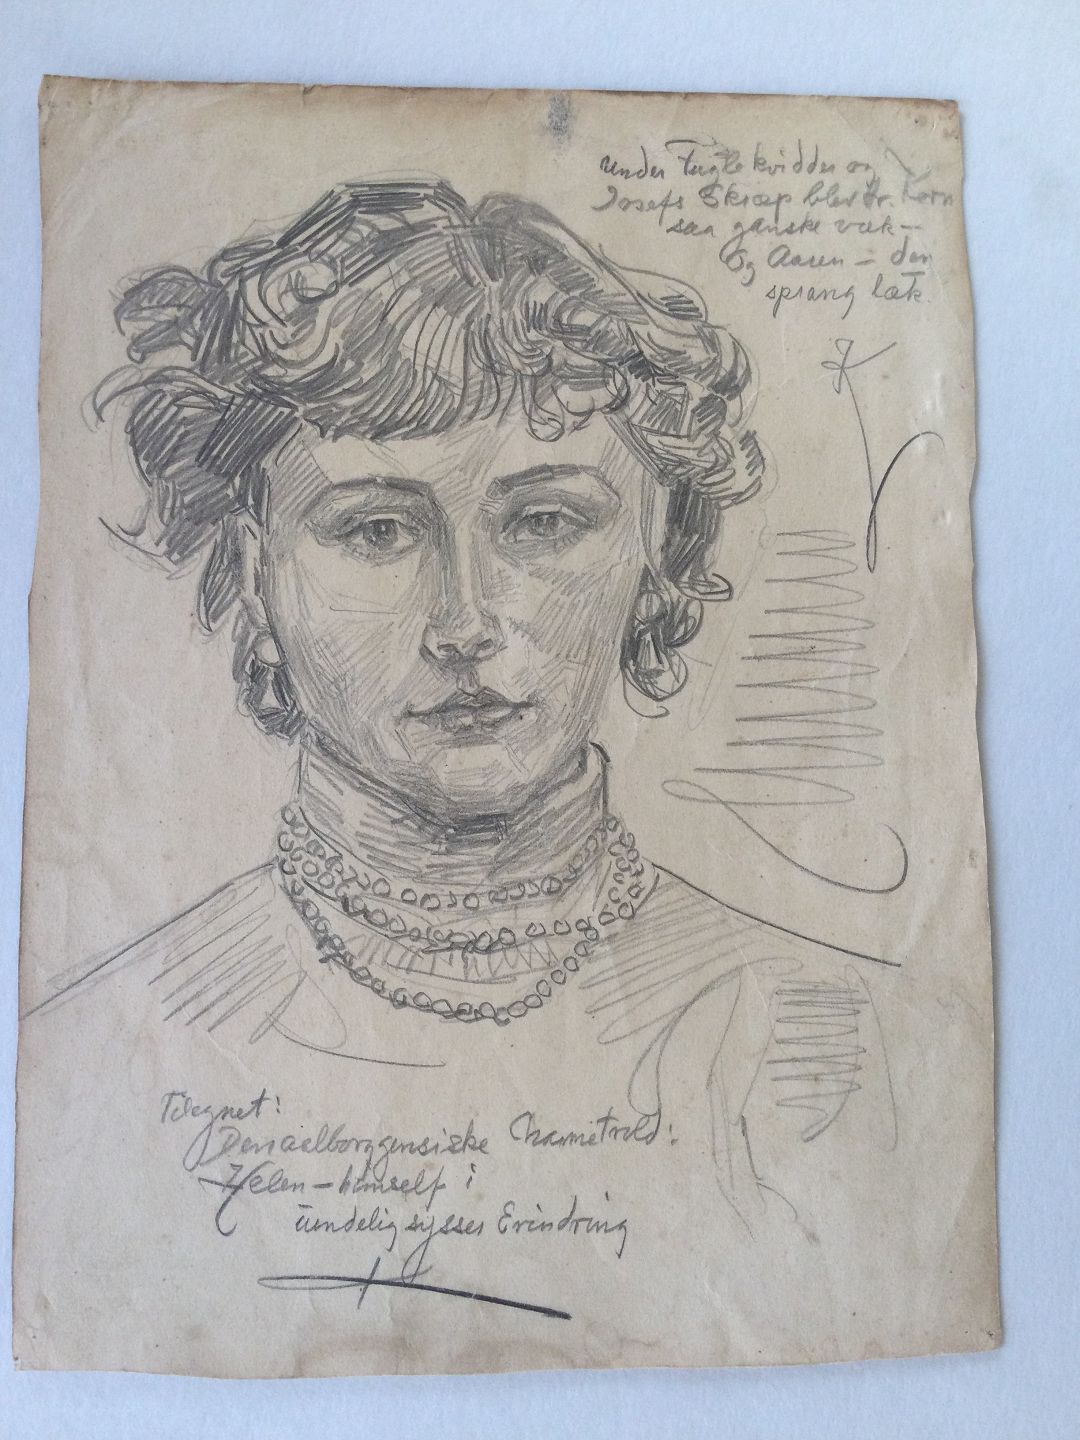 Under Fuglekvidder og
Josefs Skæp blev Hr. Korn
saa ganske væk -
og Aaren - den
sprang læk.
K
Tilegnet:
Den aalborggensiske
Helen - himself i
uendelig sysses Erindring